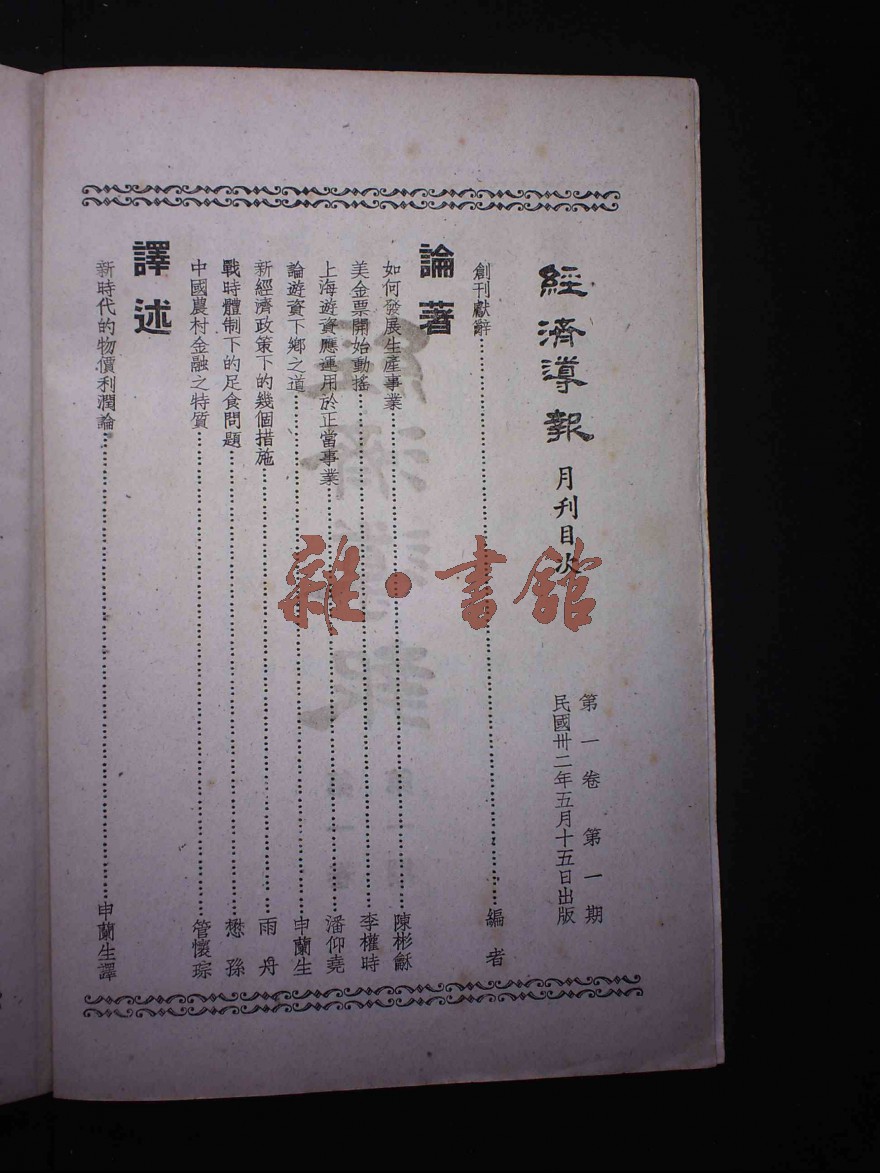 經濟導報 月刊目次
第一卷 第一期
民國卅二年五月十五日出版
創刊獻辭……編者
論著
如何發展生產事業……陳彬龢
美金票開始動搖……李權時
上海遊資應運用於正當事業……潘仰堯
論遊資下鄉之道……申蘭生
新經濟政策下的幾個措施……雨舟
戰時體制下的足食問題……懋孫
中國農村金融之特質……管懷琮
譯述
新時代的物價利潤論……申蘭生譯
雜·書館